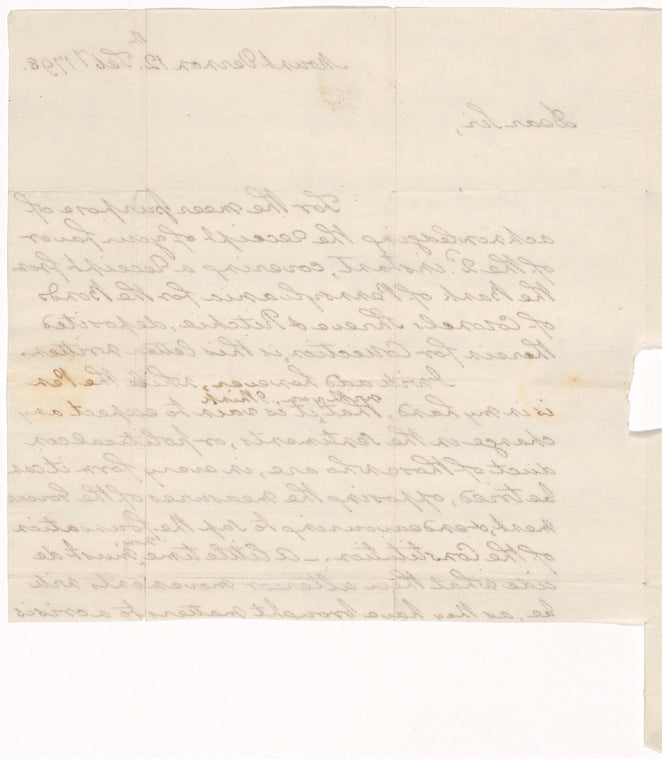 Mount Vernon 12th Feby 1798.
Dear Sir,
For the meer purpose of
acknowledging the receipt of your favor
of the 2d instant, covering a receipt from
the Bank of Pennsylvania for the Bonds
of Colonels Shreve & Ritchie, deposited
therein for Collection, is this letter written.
I will add however, while the Pen
with you, I think
is in my hand, that, it is vain to expect any
change in the sentiments, or political con
duct of those who are, in every form it can
be tried, opposing the measures of the Govern
ment, & endeavouring to sap the foundation
of the Constitution. — A little time must de
cide what their ulterior movements will
be, as they have brought matters to a crisis